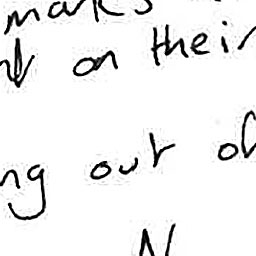 marks
on their
ng out of
N